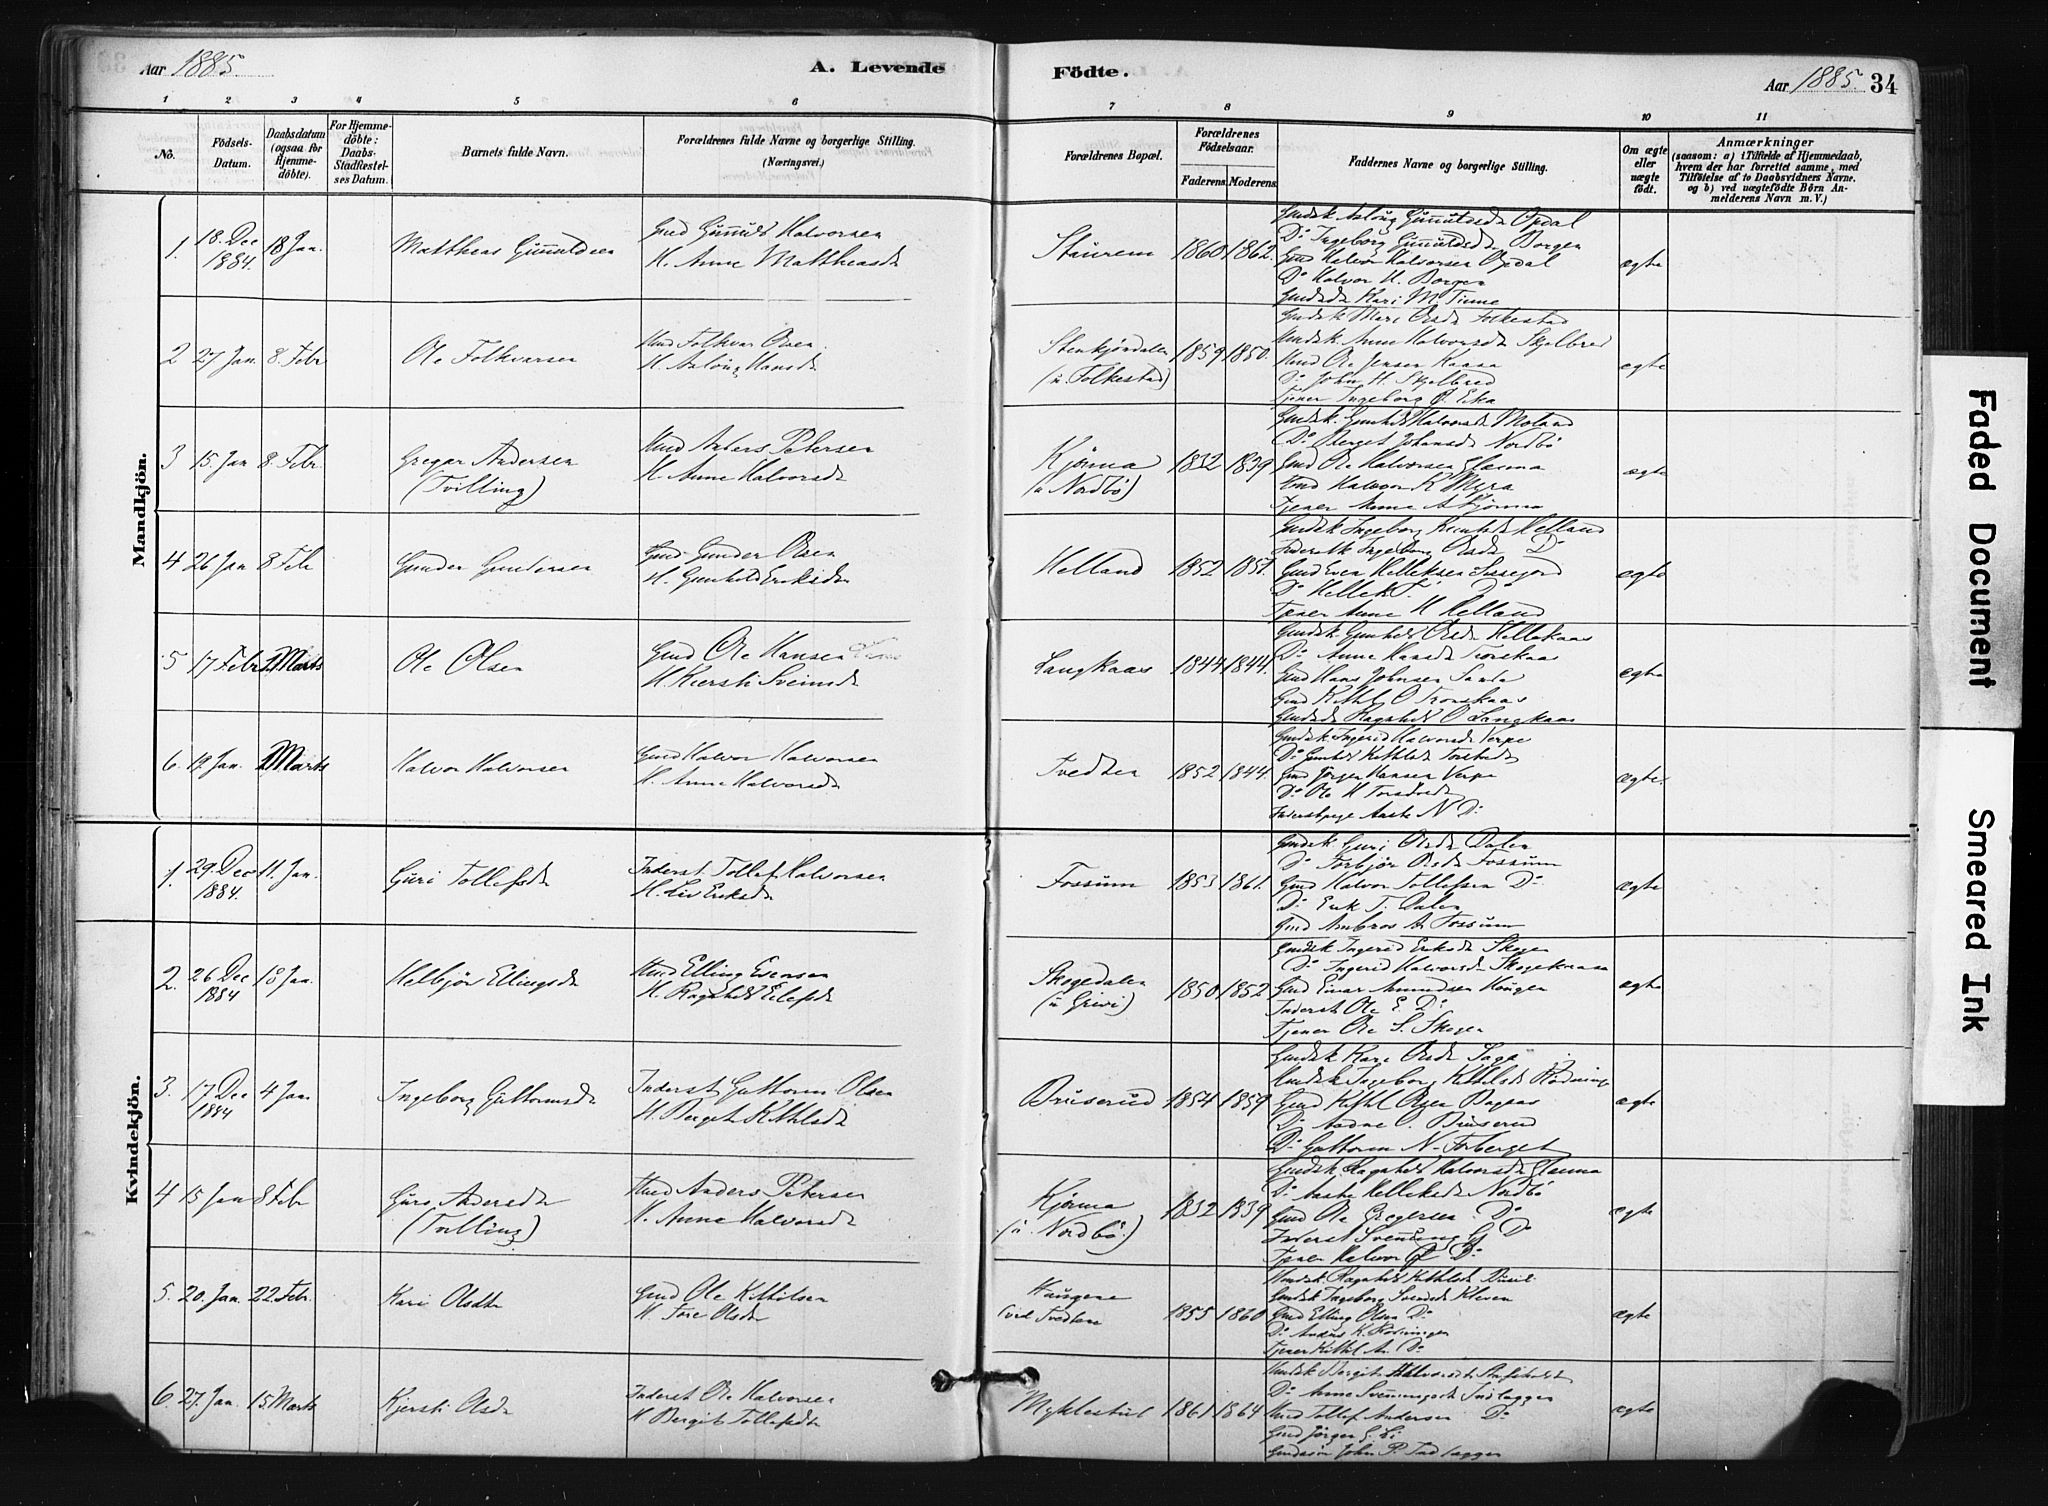 Aar 1885
A. Levende
Födte.
Aar 1885. 34
1 2 3 4 5 6 7 8 9 10 11
No.
Födsels-
Datum.
Daabsdatum
(ogsaa for
Hjemme-
döbte).
For Hjemme-
döbte:
Daabs-
Stadfæstel-
ses Datum.
Barnets fulde Navn.
Forældrenes fulde Navne og borgerlige Stilling.
(Næringsvei.)
Forældrenes Bopæl.
Forældrenes
Födselsaar.
Faderens. Moderens.
Faddernes Navne og borgerlige Stilling.
Om ægte
eller
uægte
födt.
Anmærkninger
(saasom: a) i Tilfælde af Hjemmedaab,
hvem der har forrettet samme, med
Tilföielse af to Daabsvidners Navne.
og b) ved uægtefödte Börn An-
melderens Navn m.V.)
Mandkjön.
1. 18. Dec 1884. 18 Jan. Matthæas Gunnuldsen
Gmd Gunnuld Halvorsen
H. Anne Matthæasdt
Staurem 1860 1862.
Gmdsk Aslaug Gunnuldsdt Opdal
Do Ingeborg Gunnuldsdt Borgen
Gmd Halvor Halvorsen Opdal
Do Halvor H. Borgen
Gmdsdt Kari M. Tinne
ægte
2 27 Jan. 8. Febr Ole Folkvarsen
Hmd Folkvar Olsen
H. Aslaug Hansdt
Stenkjöndalen
(u. Folkestad)
1859 1850.
Gmdsk Mari Olsdt Folkestad
Hmdsk. Anne Halvorsdt Skjelbred
Hmd Ole Jensen Kaasa
Do John H. Skjelbred
Tjener Ingeborg O. Eika
ægte
3 15. Jan 8. Febr. Gregar Andersen
(Tvilling)
Hmd Anders Petersen
H. Anne Halvorsdt
Kjönna
(u Nordbö)
1832 1839
Gmdsk. Gunhild Halvorsdt Moland
Do Berget Johansdt Nordbö
Gmd Ole Halvorsen
Hmd Halvor K Myra
Tjener Anne A Kjönna
ægte
4 26 Jan 8 Febr Gunder Gundersen
Gmd Gunder Olsen
H. Gunhild Eriksdt
Helland 1852 1857.
Gmdsk Ingeborg Helland
Inderstk Ingeborg Olsdt Do
Gmd Even Helleksen
Do Hellek T.
Tjener Anne H Helland
ægte
5 17 Febr 1 Marts Ole Olsen
Gmd Ole Hansen
H. Kjersti Sveinsdt
Langkaas 1844 1844.
Gmdsk. Gunhild Olsdt Hellekaas
Do Anne Hansdt Tronskaas
Gmd Hans Johnsen Sanda
Gmd Kittil O Tronskaas
Gmdsdt Ragnhild O Langkaas
ægte
6. 19 Jan. 1 Marts Halvor Halvorsen
Gmd Halvor Halvorsen
H. Anne Halvorsdt
Tvedten 1852 1844.
Gmdsk. Ingerid Halvorsdt Verpe
Do Gunhild Kittilsdt
Gmd Jörgen Hansen Verpe
Do Ole H
Aaste N Do
ægte.
Kvindekjön.
1. 29. Dec 1884. 11. Jan. Guri Tollefsdt
Inderst Tollef Halvorsen
H. Liv Eriksdt
Fossum 1853 1861.
Gmdsk Guri Olsdt Dalen
Do Torbjör Olsdt Fossum
Gmd Halvor Tollefsen Do
Do Erik T. Dalen
Gmd Ambros A. Fossum
ægte
2. 26 Dec 1884 18 Jan. Helbjör Ellingsdt
Hmd Elling Evensen
H. Ragnhild Eilefsdt
Skogedalen
(u Grivi)
1850 1852
Gmdsk Ingerid Eriksdt Skogen
Do Ingerid Halvorsdt
Gmd Einar Amundsen Haugen
Inderst Ole E. Do
Tjener Ole S. Skogen
ægte
3. 17 Dec 1884 4 Jan Ingeborg Guttormsdt
Inderst Guttorm Olsen
H. Berget Kittilsdt
Bruserud 1854 1859
Gmdsk Kari Olsdt
Hmdsk Ingeborg Kittilsdt
Gmd Kittil Olsen
Do Aadne O. Bruserud
Do Guttorm N. Forberget
ægte
4 15 Jan 8 Febr Guro Andersdt
(Tvilling)
Hmd Anders Petersen
H. Anne Halvorsdt
Kjönna
(u. Nordbö.)
1832 1839
Gmdsk. Ragnhild Halvorsdt
Do Aaste Helleksdt Nordbö
Gmd Ole Gregersen Do
Inderst Svenung G Do
Tjener Halvor O Do
ægte
5. 20. Jan. 22. Febr. Kari Olsdtr
Gmd Ole Kittilsen
H. Tore Olsdt
Haugene
(ved Tvedten
1855 1860
Hmdsk. Ragnhild Kittilsdt
Gmdsk Ingeborg Svendsdt Kleven
Gmd Elling Olsen Do
Do Anders K.
Tjener Kittil A. Do
ægte
6 27. Jan. 15. Marts Kjersti Olsdt
Inderst Ole Halvorsen
H Bergit Tollefsdt
Myklestul 1861 1864
Hmdsk Bergit Halvorsdt
Do Anne
Hmd Tollef Andersen Do
Gmd Jörgen G. Li
Gmdssön John P.
ægte
Faded Document
Smeared Ink